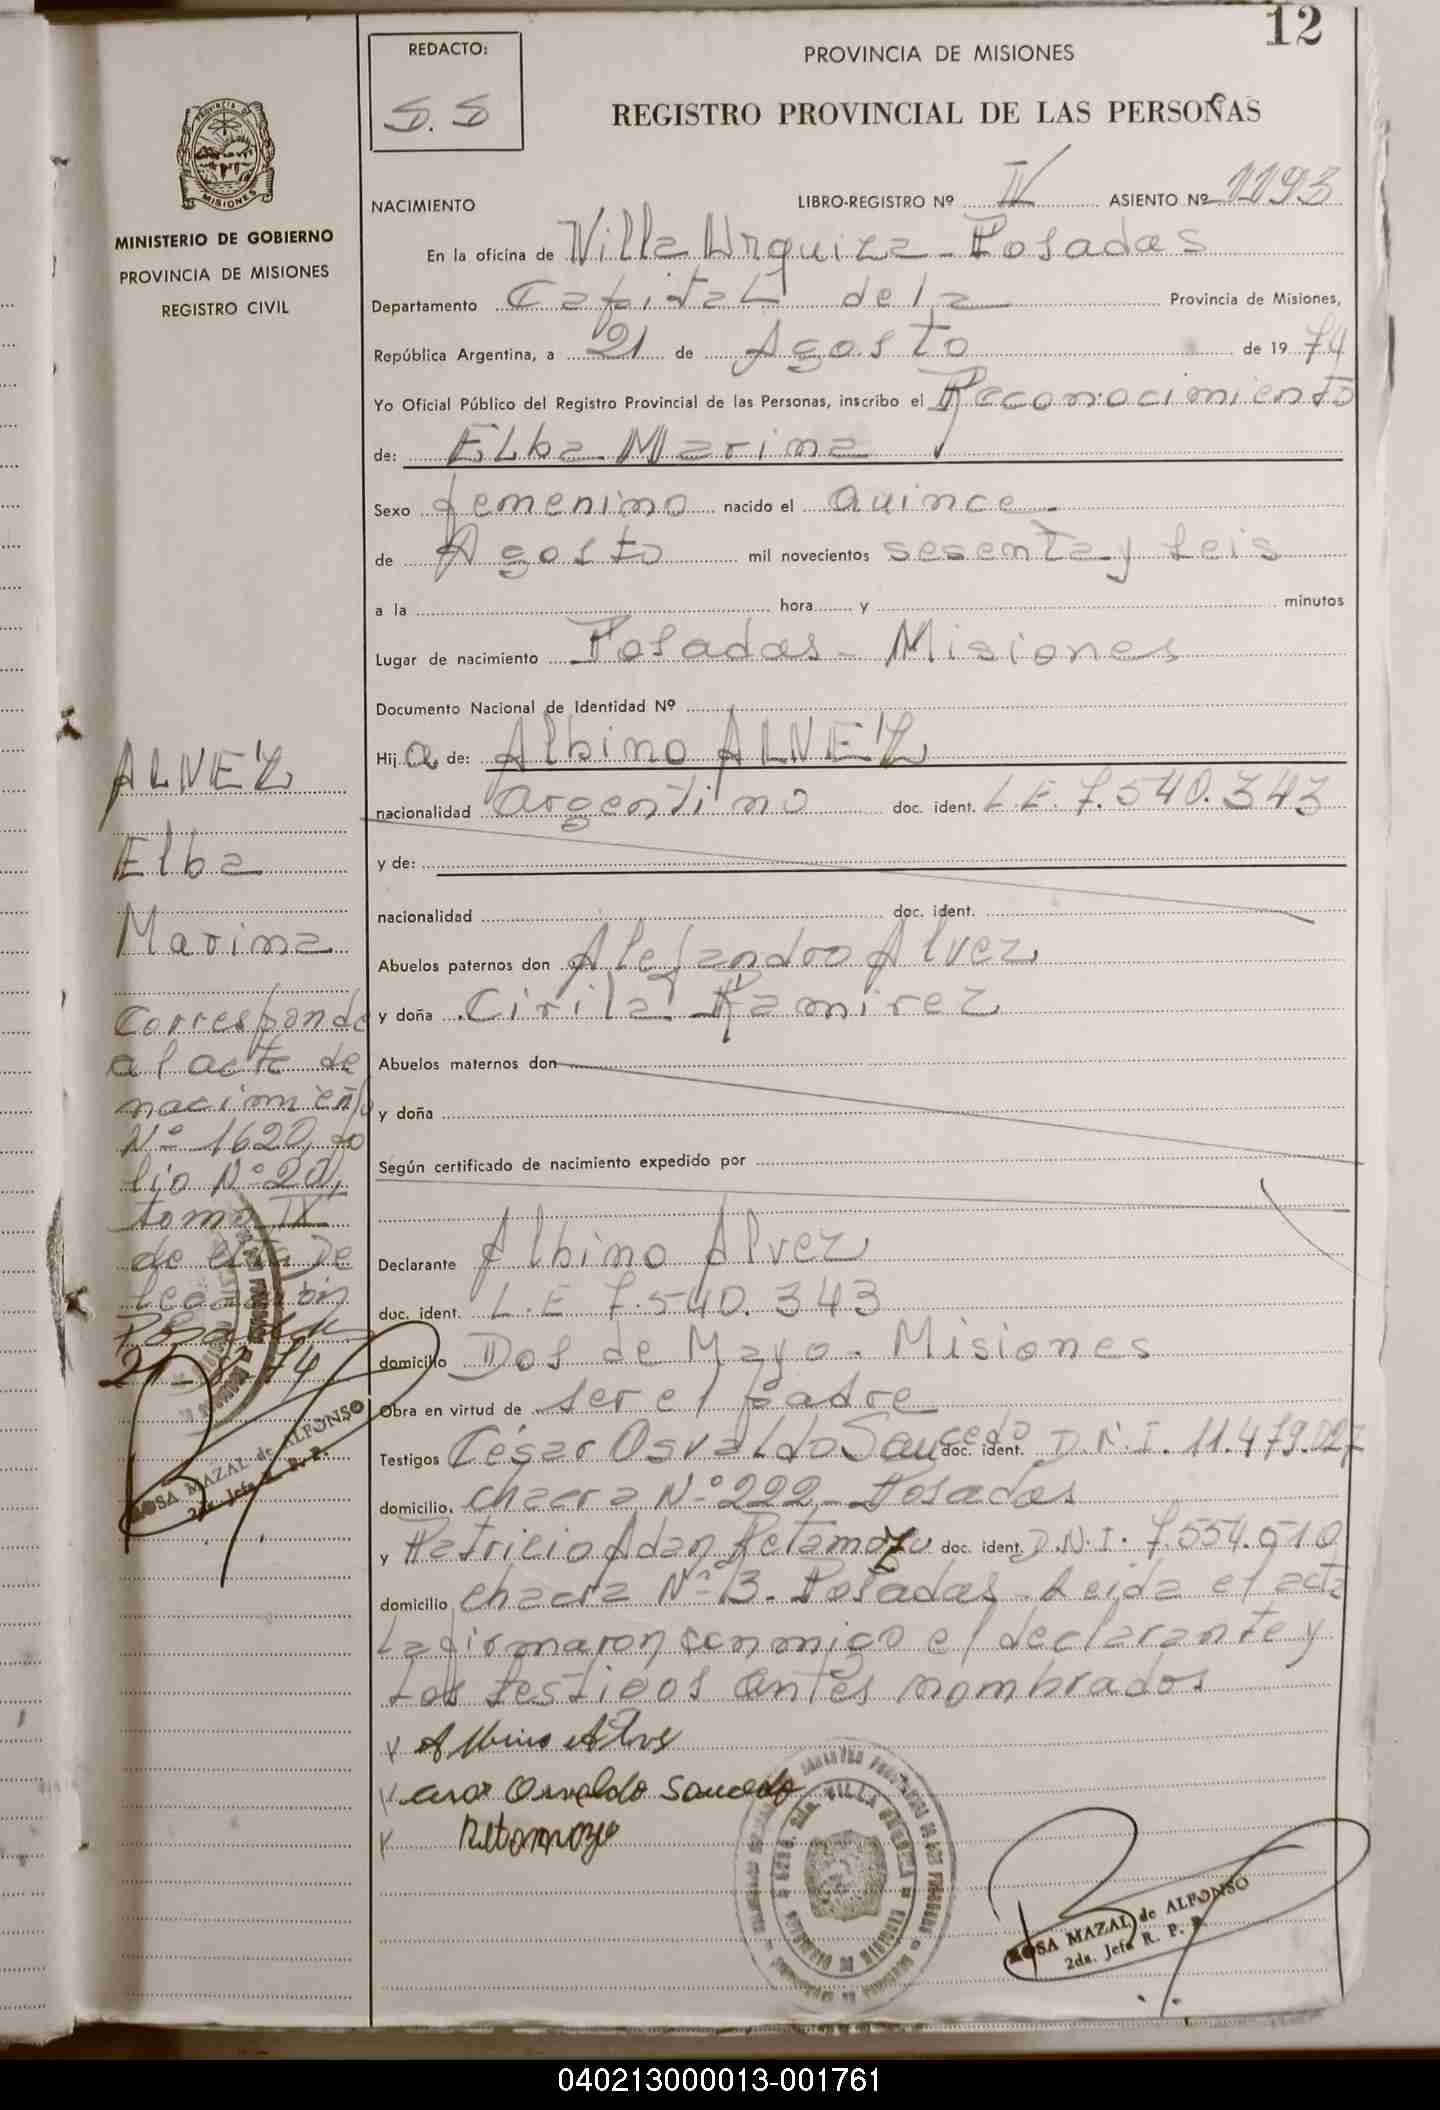 12
REDACTO:
S. S
PROVINCIA DE MISIONES
REGISTRO PROVINCIAL DE LAS PERSONAS
PROVINCIA DE
MISIONES
MINISTERIO DE GOBIERNO
PROVINCIA DE MISIONES
REGISTRO CIVIL
NACIMIENTO LIBRO-REGISTRO Nº IV ASIENTO Nº 1193
En la oficina de Villa Urquiza - Posadas
Departamento Capital de la Provincia de Misiones,
República Argentina, a 21 de Agosto de 1974
Yo Oficial Público del Registro Provincial de las Personas, inscribo el Reconocimiento
de: Elba Marina
Sexo femenino nacido el quince
de Agosto mil novecientos sesenta y seis
a la hora y minutos
Lugar de nacimiento Posadas - Misiones
Documento Nacional de Identidad Nº
Hij a de: Albino ALVEZ
nacionalidad argentino doc. ident. L.E. 7.540.343
y de:
nacionalidad doc. ident.
Abuelos paternos don Alejandro Alvez
y doña Cirila Ramirez
Abuelos maternos don
y doña
Según certificado de nacimiento expedido por
Declarante Albino Alvez
doc. ident. L.E 7.540.343
domicilio Dos de Mayo - Misiones
Obra en virtud de ser el padre
Testigos César Osvaldo Saucedo doc. ident. D.N.I. 11.479.027
domicilio, chacra Nº 222 - Posadas
y Patricio Adan Retamozo doc. ident. D.N.I. 7.554.610
domicilio chacra Nº 13 - Posadas - Leida el acta
la firmaron conmigo el declarante y
los testigos antes nombrados
Albino Alves
Cesar Osvaldo Saucedo
Retamozo
ROSA MAZAL de ALFONSO
2da. Jefa R. P. P.
ALVEZ
Elba
Marina
Corresponde
al acta de
nacimiento
Nº 1620, fo
lio Nº 20,
tomo IX
de esta De
legación
Posadas
21-8-74
ROSA MAZAL de ALFONSO
2da. Jefa R. P. P.
040213000013-001761